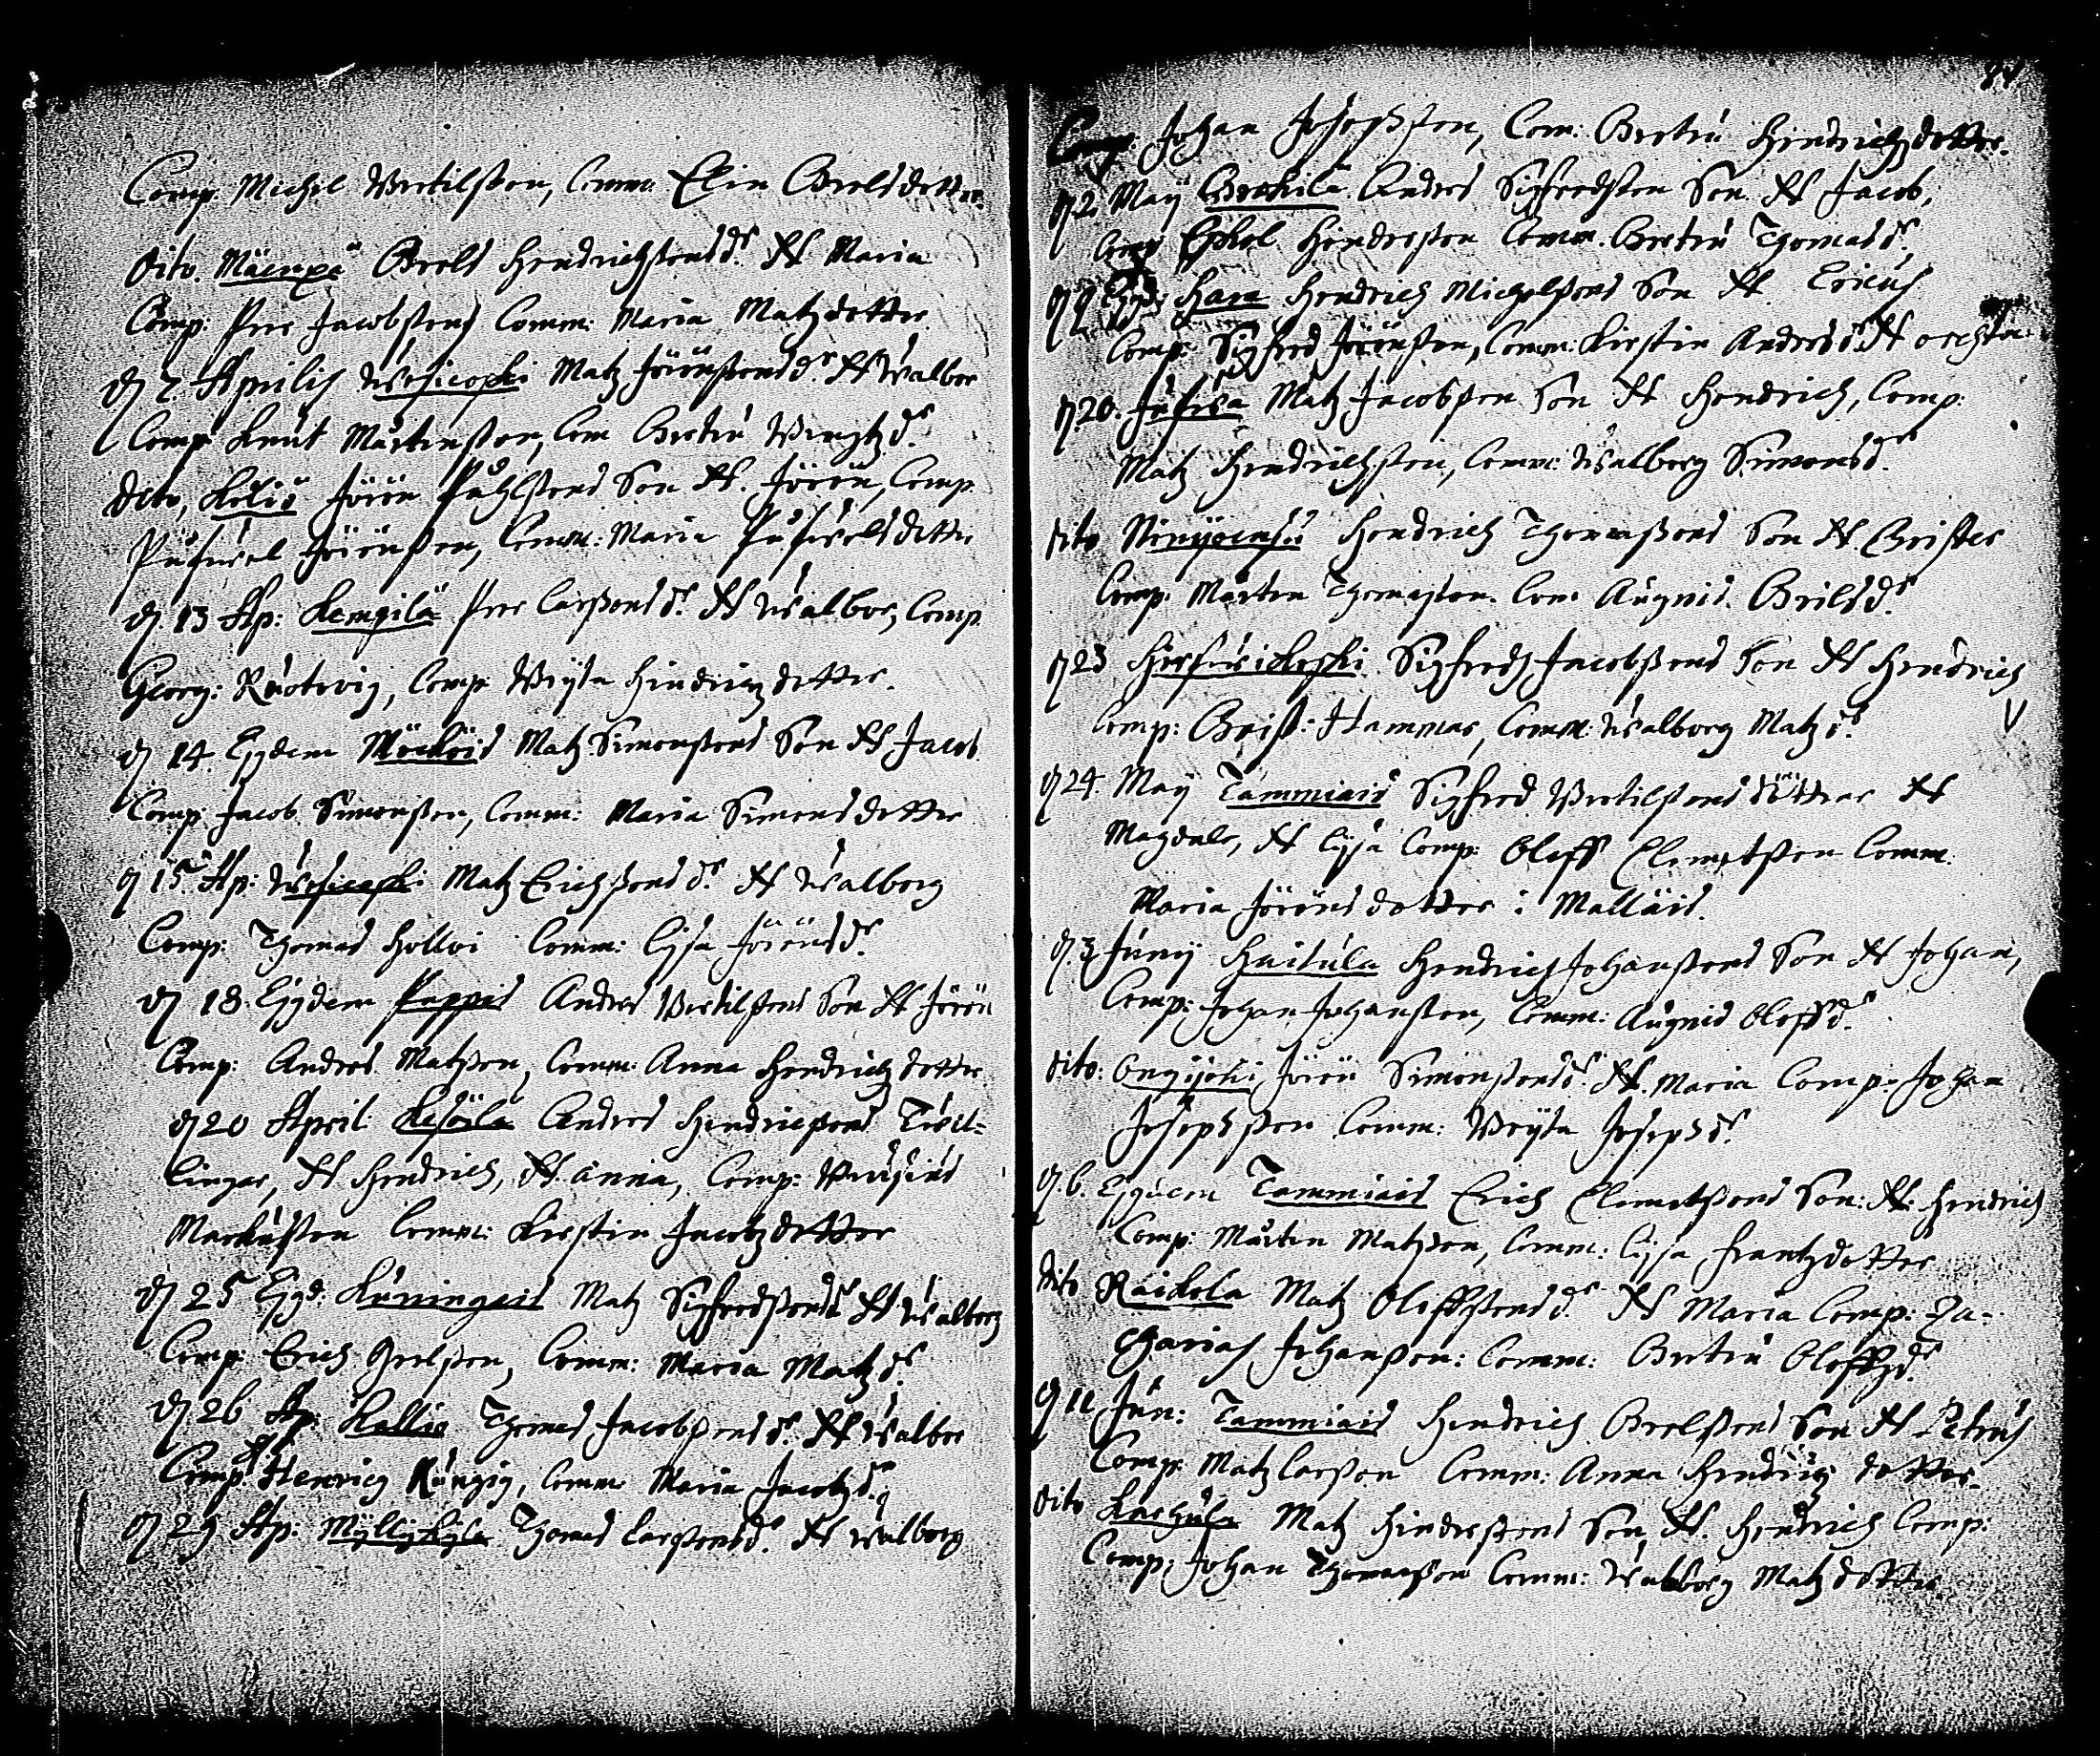 Comp. Michel Bertilsson, Comm. Elin Brelsdotter.
Dito. Mäenpä Brels Hendrichssons dr. N Maria
Comp: Per Jacobssons Comm: Maria Matzdotter
d 7. Aprilis Wesicoski Matz Jörönssons dr. N Walbor
Comp Knut Mårtensson, Com Bertu Bengtzdr.
Dito, Kolio Jörön Påhlssons Son N. Jörön, Comp.
Jörönsson, Comm: Maria
d. 13 Ap: Kempilä Per Larssons dr. N Walbor, Comp.
Georg: Comp Bryta Hindrichzdotter.
d 14. Ejgdem Möcköis Matz Simonssons Son N Jacob
Comp: Jacob Simonsson, Comm: Maria Simonsdotter
d 15. Ap: Wesicoski Matz Erichssons dr. N Walborg
Comp: Thomas Hollvi Comm: Lisa Jöröns dr.
d 18. Ejgdem Pappis Andres Bertilssons Son N Jörön
Comp: Andres Matzson, Comm: Anna Hendrichzdotter
d 20 April Kesöila Andres Hendricssons Twil-
lingar, N Hendrich, N. Anna, Comp:
Markusson Comm: Kirstin Jacobzdotter
d 25 Ejgd: Kuningais Matz Sigfredssons dr N Walborg
Comp: Erich Grelsson, Comm: Maria Matzdr.
d 26 Ap: Kallio Thomas Jacobssons dr. N Walbor
Comp: Henrich Comm: Maria Jacobzdr.
d 29 Ap: Myllykylä Thomas Larssons dr. N Walborg
84
Comp: Johan Josepsson, Com: Bertu Hendrichzdotter.
d 2. Maÿ Andres Sigfredsson Son N Jacob,
Comp Eskel Hendersson Comm. Bertu Thomas dr.
d 9 Ejgd: Hara Hendrich Michelssons Son N Ericus
Comp: Sigfred Jörönsson, Comm: Kirstin Andersdr. N
d 20. Matz Jacobsson Son N Hendrich, Comp:
Matz Hendrichsson, Comm: Walborg Simonsdr.
Dito Hendrich Thomassons Son N. Christer
Comp: Mårten Thomasson. Com: Augnis. Brilsdr.
d 23 Sigfredz Jacobssons Son N Hendrich
Comp: Hammar, Comm: Walborg Matzdr.
d 24. Maÿ Tammiais Sigfred Bertilssons döttrar N
Magdale, N Lisa Comp: Oleff Clemetsson Comm.
Maria Jörönsdotter i Malläis.
d. 3 Junÿ Huitula Hendrich Johanssons Son N Johan,
Comp: Johan Johansson, Comm: Augnis Oleffdr.
Dito: Ongijoki Jörön Simonssons dr. N. Maria Comp: Johan
Josepsson Comm: Bryta Josepsdr.
d. 6. Ejgdem Tammiais Erich Clemetssons Son: N. Hendrich
Comp: Mårten Matzson, Comm: Lisa Frantzdotter
Dito Raikola Matz Oleffssons dr. N Maria Comp: Za-
charias Johansson: Comm: Bertu Oleffzdr.
d 11 Jun: Tammiais Hendrich Brelssons Son N Petrus
Comp: Matz Larsson Comm: Anna Hendrichzdotter.
Dito Karhula Matz Hinderssons Son, N. Hendrich Comp:
Comp: Johan Thomasson Comm: Walborg Matzdotter